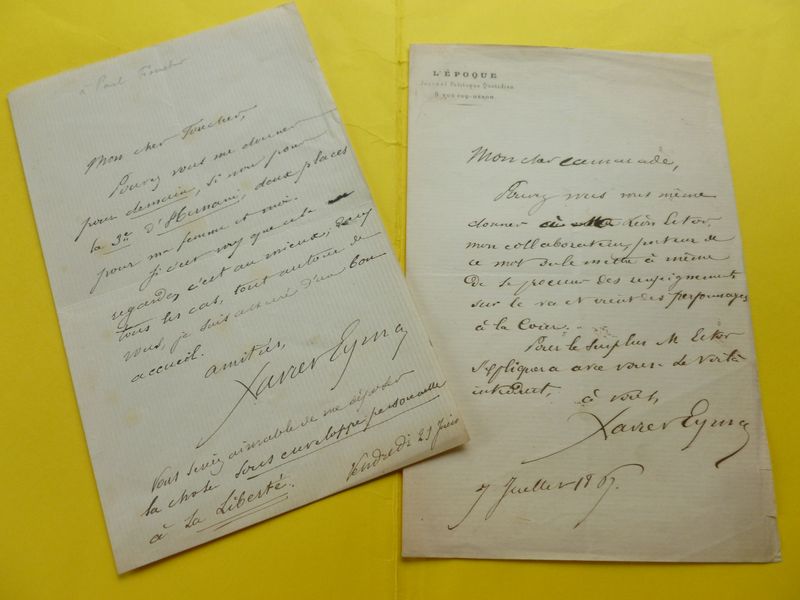 à Paul Foucher
Mon cher Foucher,
Pouvez vous me donner
pour demain, si non pour
la 3e d'Hernani, deux places
pour ma femme et moi.
Si c'est vous que cela
regarde, c'est au mieux; dans
tous les cas, tout autour de
vous, je suis assuré d'un bon
accueil.
amitiés,
Xavier Eyma
Vous seriez aimable de me déposer
la chose sous enveloppe personnelle
à La Liberté. Vendredi 21 Juin
L'ÉPOQUE
Journal Politique Quotidien
Mon cher camarade,
Pouvez vous vous même
donner à Léon Estor,
mon collaborateur, porteur de
ce mot de le mettre à même
de se procurer des renseignements
sur le va et vient des personnages
à la Cour.
Pour le surplus M. Estor
s'expliquera avec vous de
à vous,
Xavier Eyma
7 Juillet 1867.